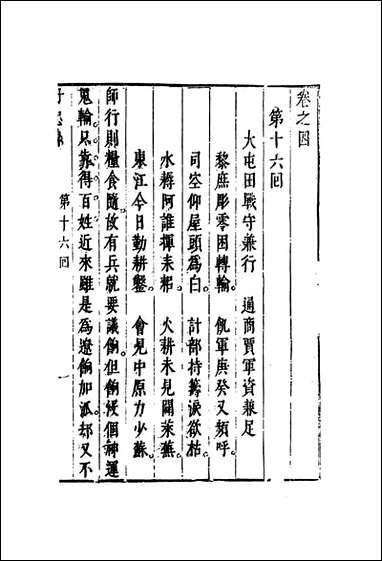 卷之四
第十六回
大屯田戰守兼行　通商賈軍資兼足
黎庶彫零困轉輸。　仉軍庚癸又頻呼。
司空仰屋頭為白。　計部持籌淚欲枯。
水耨阿誰揮耒耜。　火耕未見闢萊蕪。
東江今日勤耕鑿。　會見中原力少蘇。
師行則糧食隨。故有兵就要議餉。但餉沒個神運
鬼輸。只靠得百姓近來雖是為遼餉加派。却又不
第十六回
一